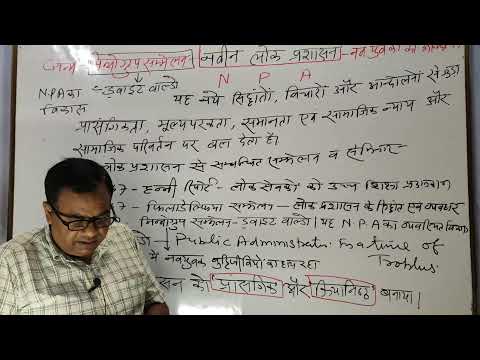 जन्म - मिन्नोब्रुप सम्मेलन नवीन लोक प्रशासन - नवयुवकों का
N P A
N.P.A का - ड्वाइट वाल्डो
विकास यह नये सिद्धांतो, विचारों और आन्दोलनों से जुड़ा
प्रासंगिकता, मूल्यपरकता, समानता एवं सामाजिक न्याय और
सामाजिक परिवर्तन पर बल देता है।
लोक प्रशासन से सम्बन्धित सम्मेलन व सेमिनार -
7 - हन्नी रिपोर्ट - लोक सेवकों को उच्च शिक्षा
7 - फिलाडेल्फिया सम्मेलन - लोक प्रशासन के सिद्धांत एवं व्यवहार
मिन्नोब्रुक सम्मेलन - ड्वाइट वाल्डो | यह N.P.A का
डो - Public Administration in a time of
में नवयुवक बुद्धिजीवियों का हाथ रहा
सन को प्रासंगिक और क्रियानिष्ठ बनाया।